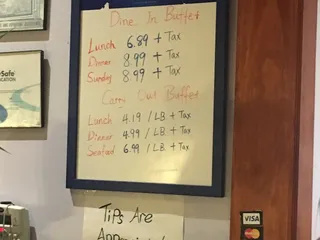 Dine In Buffet
Lunch 6.89 + Tax
Dinner 8.99 + Tax
Sunday 8.99 + Tax
Carry Out Buffet
Lunch 4.19 / LB + Tax
Dinner 4.99 / LB + Tax
Seafood 6.99 / LB + Tax
TiPs Are
VISA
MasterCard